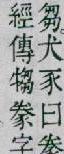 芻犬豕曰豢
經傳犓豢字